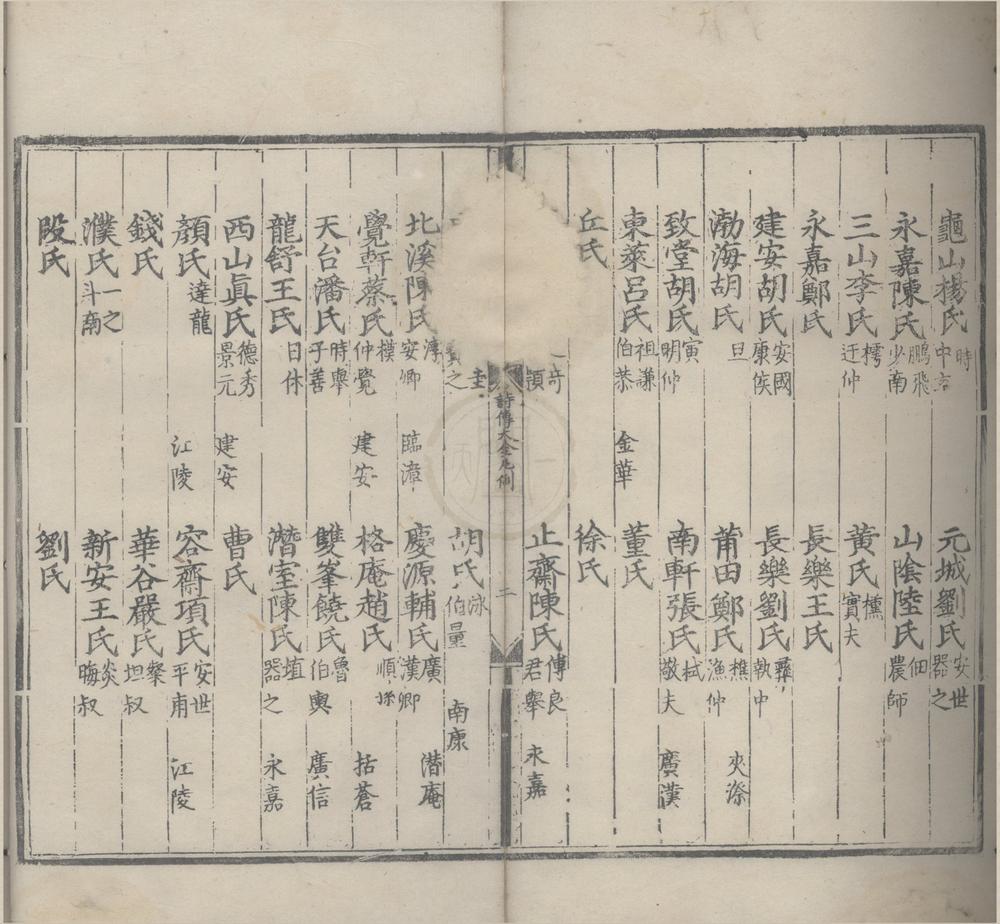 龜山楊氏時中立 元城劉氏安世器之
永嘉陳氏鵬飛少南 山陰陸氏佃農師
三山李氏樗迂仲 黃氏櫄實夫
永嘉鄭氏 長樂王氏
建安胡氏安國康侯 長樂劉氏彝執中
渤海胡氏旦 莆田鄭氏樵漁仲 夾漈
致堂胡氏寅明仲 南軒張氏栻敬夫 廣漢
東萊呂氏祖謙伯恭 金華 董氏
丘氏 徐氏
止齋陳氏傅良君舉 永嘉
詩傳大全凡例 二
之 胡氏泳伯量 南康
北溪陳氏淳安卿 臨漳 慶源輔氏廣漢卿 潛庵
覺軒蔡氏模仲覺 建安 格庵趙氏順孫 括蒼
天台潘氏時舉子善 雙峯饒氏魯伯輿 廣信
龍舒王氏日休 潛室陳氏埴器之 永嘉
西山真氏德秀景元 建安 曹氏
顏氏達龍 江陵 容齋項氏安世平甫 江陵
錢氏 華谷嚴氏粲坦叔
濮氏一之斗南 新安王氏炎晦叔
段氏 劉氏